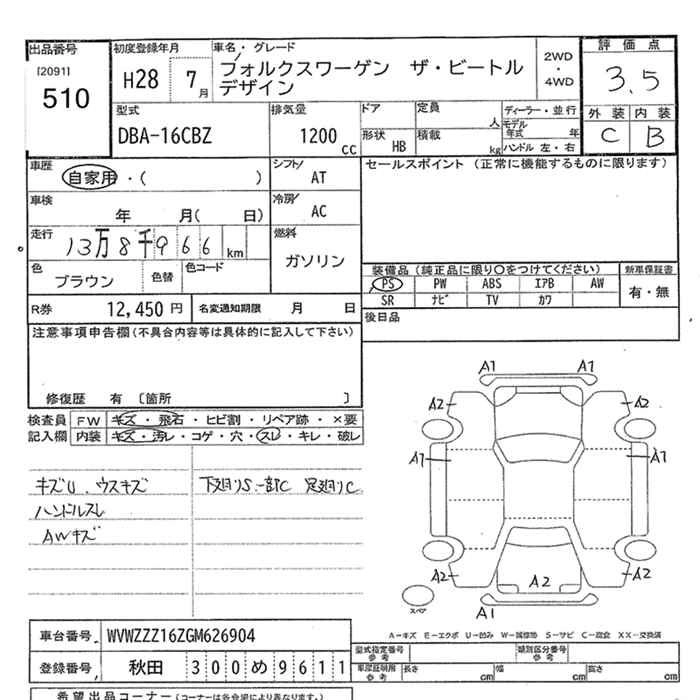 出品番号
[2091]
510
初度登録年月
H28 7月
車名・グレード
フォルクスワーゲン ザ・ビートル
デザイン
2WD
・
4WD
評価点
3.5
外装 内装
C B
型式
DBA-16CBZ
排気量
1200 cc
ドア
定員
人
形状
HB
積載
kg
ディーラー・並行
モデル年式 年
ハンドル 左・右
車歴
自家用・( )
シフト
AT
車検
年 月( 日)
冷房
AC
走行
13万8千966 km
燃料
ガソリン
色
ブラウン
色替
色コード
R券 12,450 円
名変通知期限 月 日
セールスポイント (正常に機能するものに限ります)
装備品 (純正品に限り○をつけてください)
新車保証書
PS PW ABS エアB AW
SR ナビ TV カワ
有・無
後日品
注意事項申告欄(不具合内容等は具体的に記入して下さい)
修復歴 有 〔箇所 〕
検査員 FW キズ・飛石・ヒビ割・リペア跡・×要
記入欄 内装 キズ・汚レ・コゲ・穴・スレ・キレ・破レ
キズU、ウスキズ
ハンドルスレ
AWキズ
下廻りS、一部C 足廻りC
A1 A1
A2 A2
A1 A1
A2 A2
A2
A1
スペア
A-キズ E-エクボ U-凹み W-補修跡 S-サビ C-腐食 XX-交換済
車台番号 WVWZZZ16ZGM626904
登録番号 秋田 300 め 9611
型式指定番号
参考
類別区分番号
参考
車庫証明用
参考
長さ cm
幅 cm
高さ cm
希望出品コーナー (コーナーは各会場により異なります。)